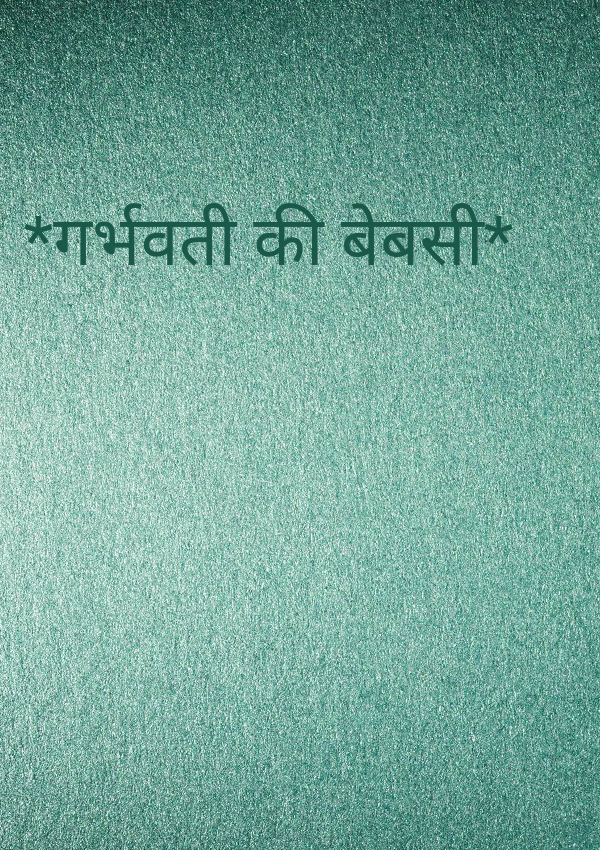 *गर्भवती की बेबसी*